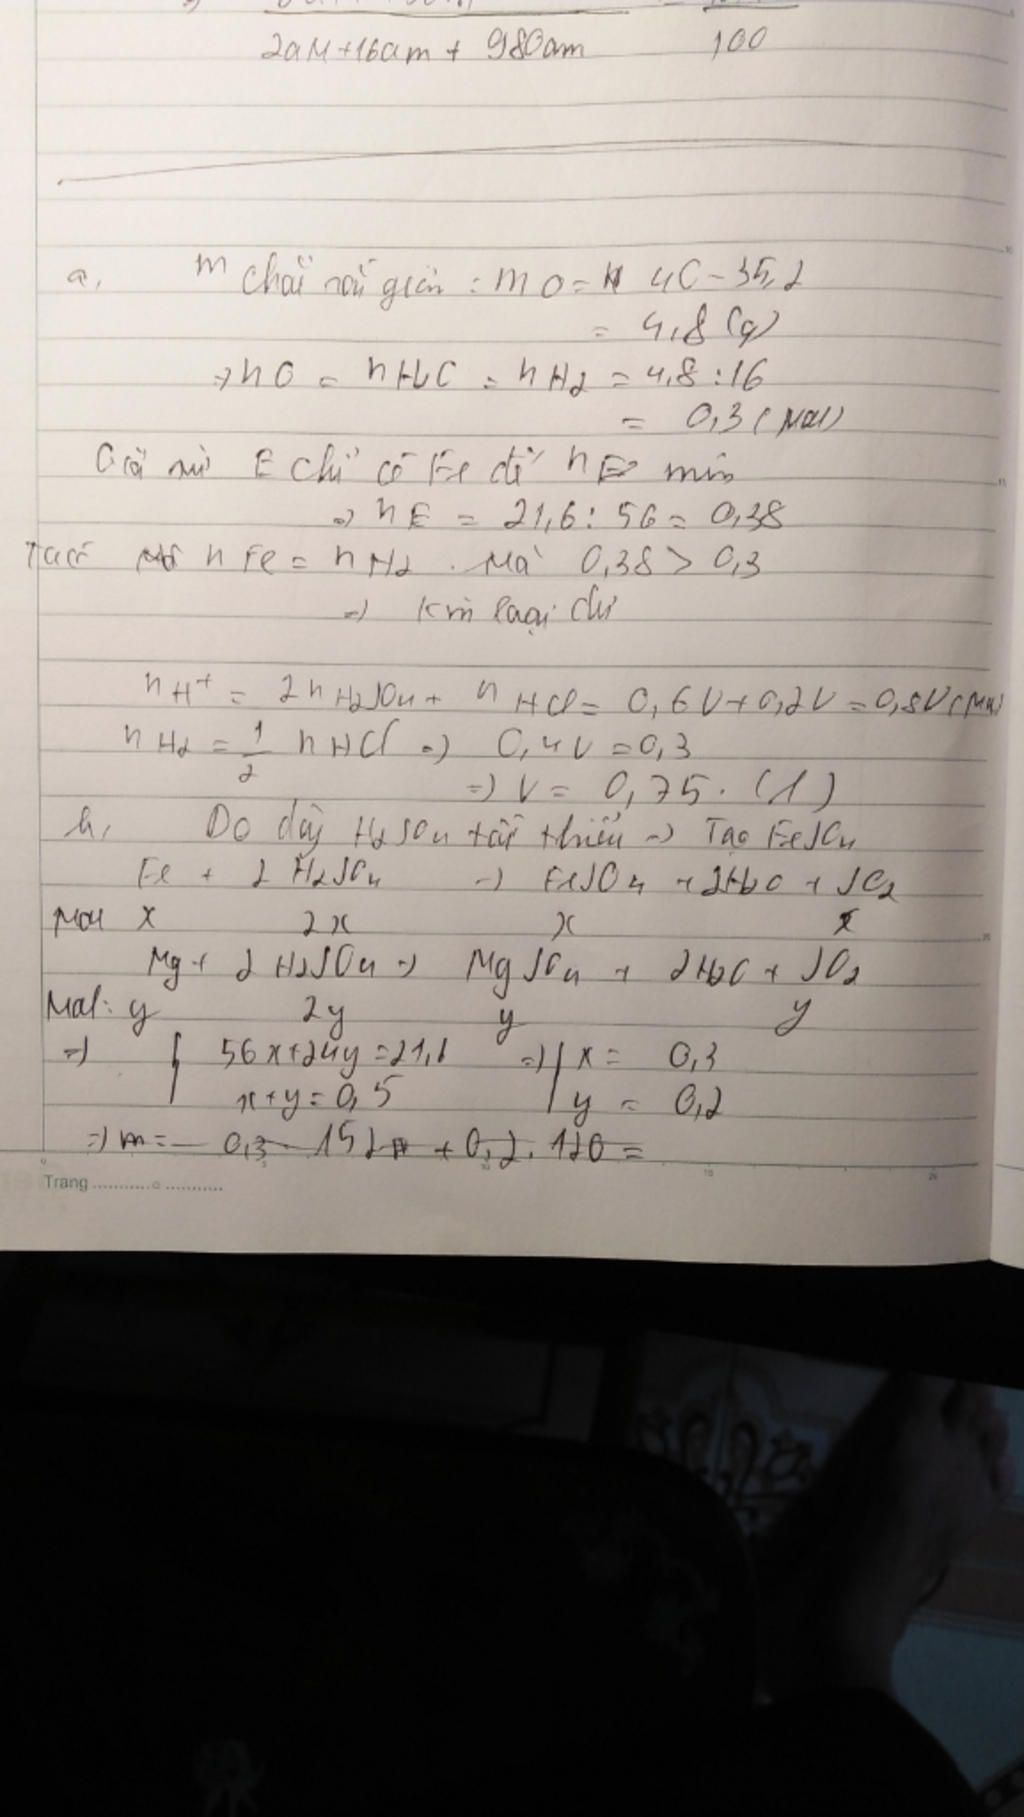 2aM+16am + 980am 100
a, m chất rắn giảm : mO = 40 - 35,2
= 4,8 (g)
=> nO = nH2O = nH2 = 4,8 : 16
= 0,3 (mol)
Giả sử E chỉ có Fe để nE min
=> nE = 21,6 : 56 = 0,38
Ta có nFe = nH2 . Mà 0,38 > 0,3
=> Kim loại dư
nH+ = 2nH2SO4 + nHCl = 0,6V + 0,2V = 0,8V (mol)
nH2 = 1/2 nHCl => 0,4V = 0,3
=> V = 0,75 . (l)
b, Do đây H2SO4 tối thiểu => Tạo FeSO4
Fe + 2 H2SO4 -> FeSO4 + 2H2O + SO2
Mol x 2x x x
Mg + 2 H2SO4 -> MgSO4 + 2H2O + SO2
Mol: y 2y y y
=> { 56x+24y = 21,6 => { x = 0,3
x+y = 0,5 y = 0,2
=> m = 0,3 . 152 + 0,2 . 120 =
Trang